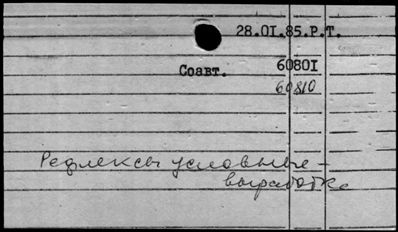 28.OI.85.Р.Т.
Соавт. 6080I
60810
Рефлексы условные -
выработка